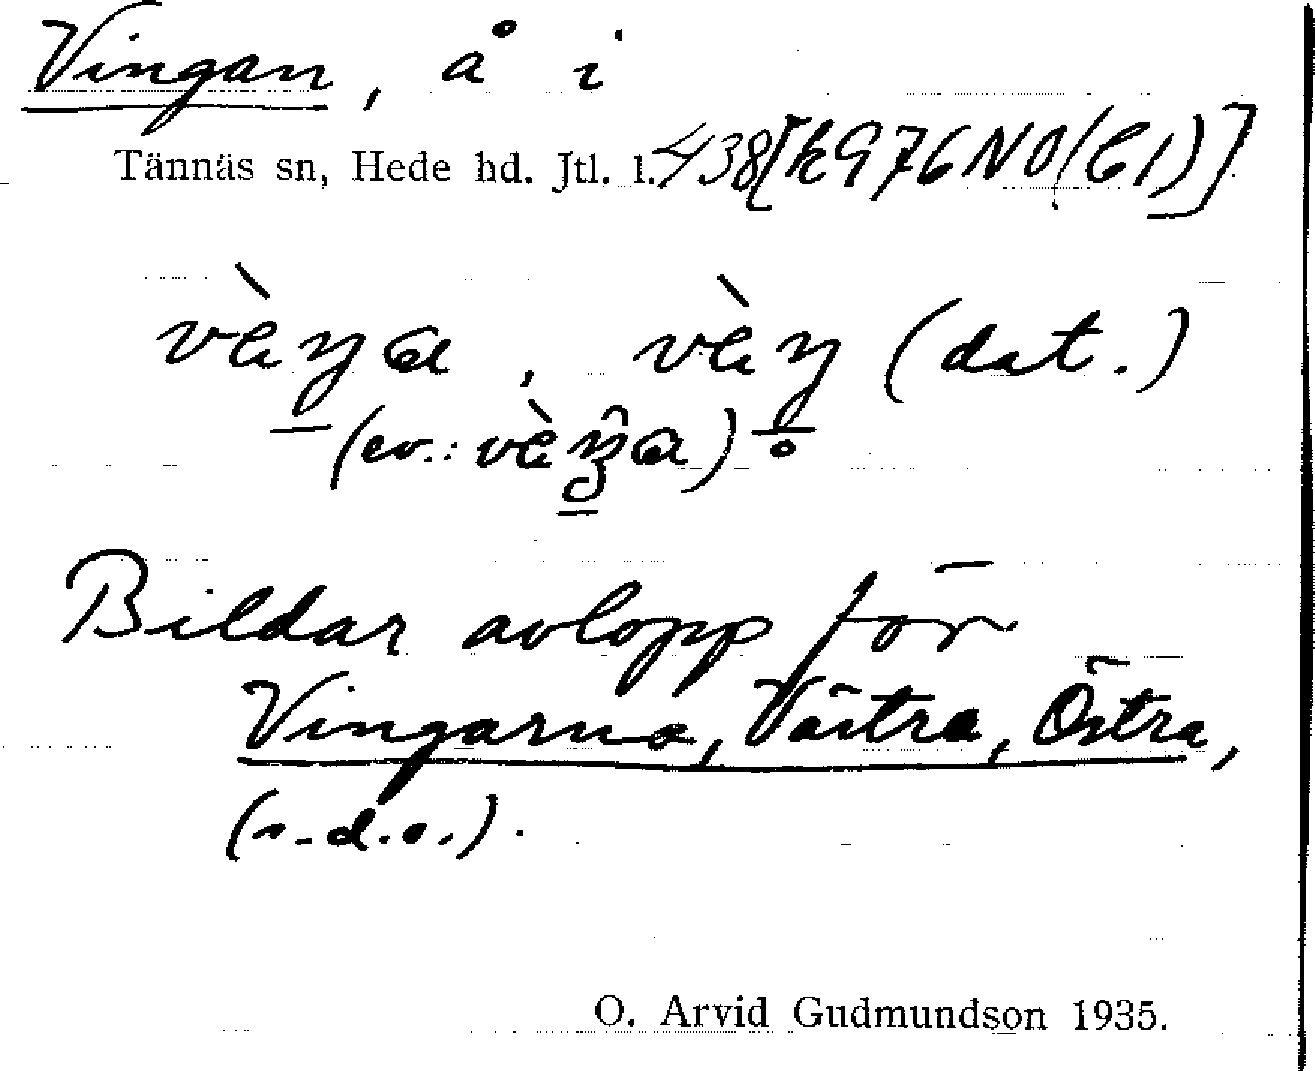 Vingan, å i
Tännäs sn, Hede hd. Jtl. l. 438[k976NO(61)]
vèŋa, vèŋ (dat.)
(ev.: vèŋa)
Bildar avlopp för
Vingarna, Västra, Östra,
(s.d.o.).
O. Arvid Gudmundson 1935.